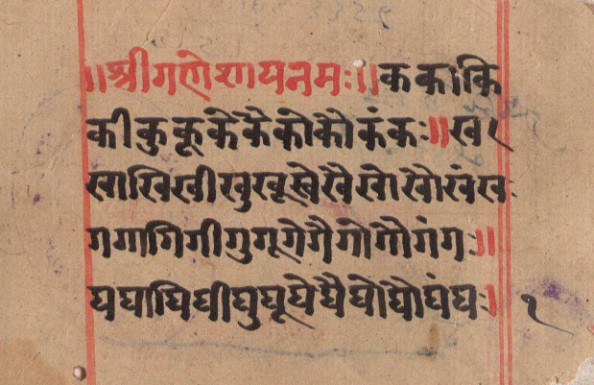 ॥श्रीगणेशायनमः॥ककाकि
कीकुकूकेकैकोकौकंकः॥ख१
खाखिखीखुखूखेखैखोखौखंखः
गगागिगीगुगूगेगैगोगौगंगः॥
घघाघिघीघुघूघेघैघोघौघंघः। १